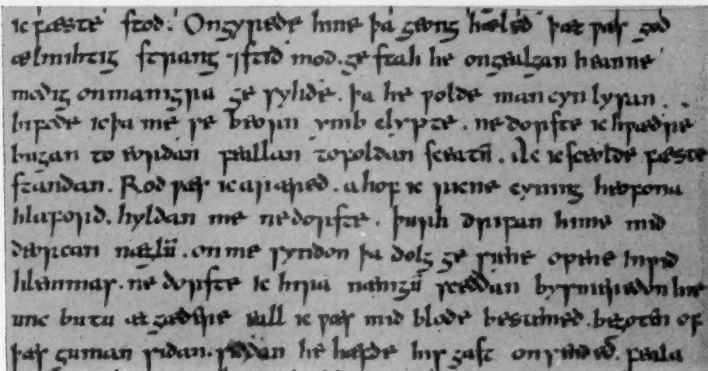 ic fæste stod. Ongyrede hine þa geong hæleð þæt ƿæs god
ælmihtig strang ⁊stið mod. ge stah he ongealgan heanne
modig onmanigra ge syhðe. þa he ƿolde man cyn lysan
bifode icþa me se beorn ymb clypte. ne dorste ic hƿæðre
bugan to eorðan feallan tofoldan sceatū. Ac ic sceolde fæste
standan. Rod ƿæs ic aræred. ahof ic ricne cyning heofona
hlaford. hyldan me ne dorste. þurh drifan hi me mid
deorcan næglū. on me syndon þa dolg ge siene opene inƿid
hlemmas. ne dorste ic hira nænigū sceððan bysmeredon hie
unc butu æt gædere eall ic ƿæs mid blode bestemed. begoten of
þæs guman sidan. siððan he hæfde his gast on sended. feala